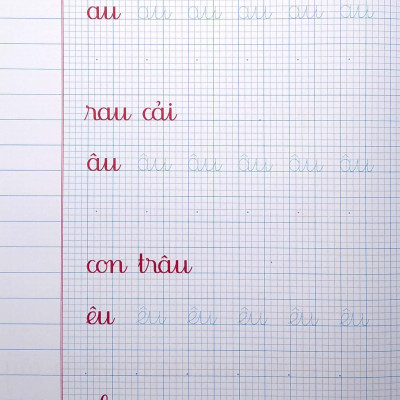 au au au au au au
rau cải
âu âu âu âu âu âu
con trâu
êu êu êu êu êu êu